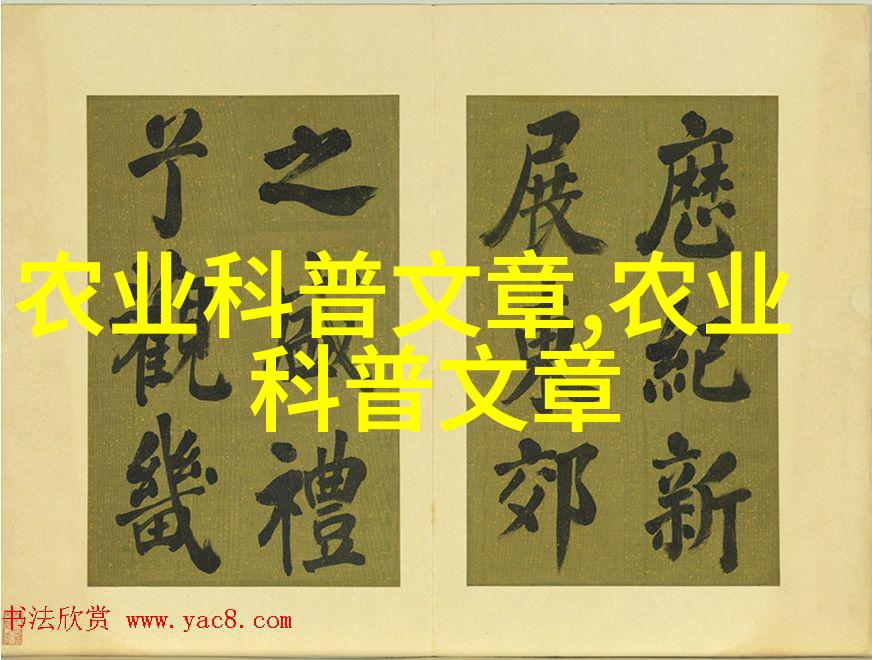 農业科普文章,农业
科普文章
紀新
展郊
之禮
觀畿
书法欣赏 www.yac8.com